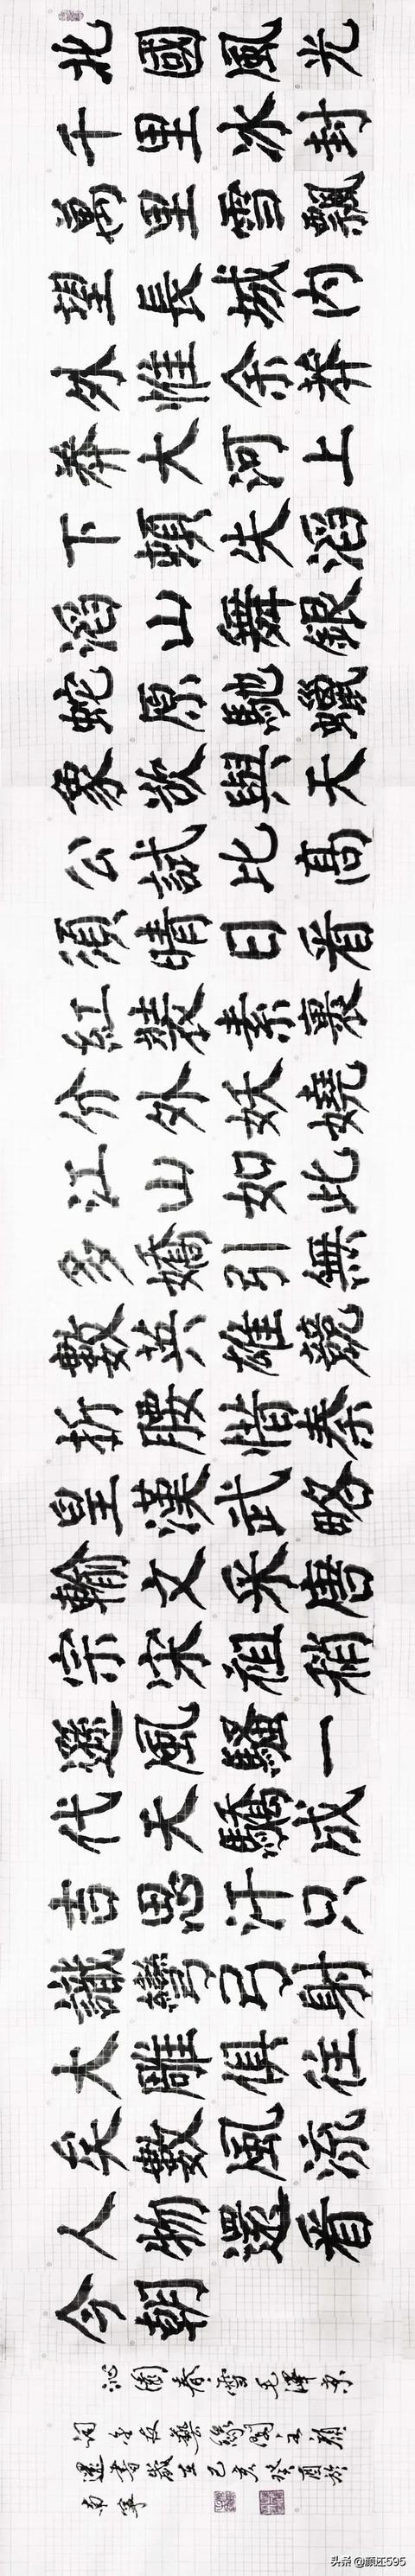 北國風光
千里冰封
萬里雪飄
望長城内
外惟余莽
莽大河上
下頓失滔
滔山舞銀
蛇原馳蠟
象欲與天
公試比高
須晴日看
紅裝素裹
介外妖嬈
江山如此
多嬌引無
數英雄競
折腰惜秦
皇漢武略
輸文采唐
宗宋祖稍
遜風騷一
代天驕成
吉思汗只
識彎弓射
大雕俱往
矣數風流
人物還看
今朝
沁園春雪毛澤東
詞友藝緣閣主顏
還書歲在己亥癸酉於
南寧
头条 @颜还595